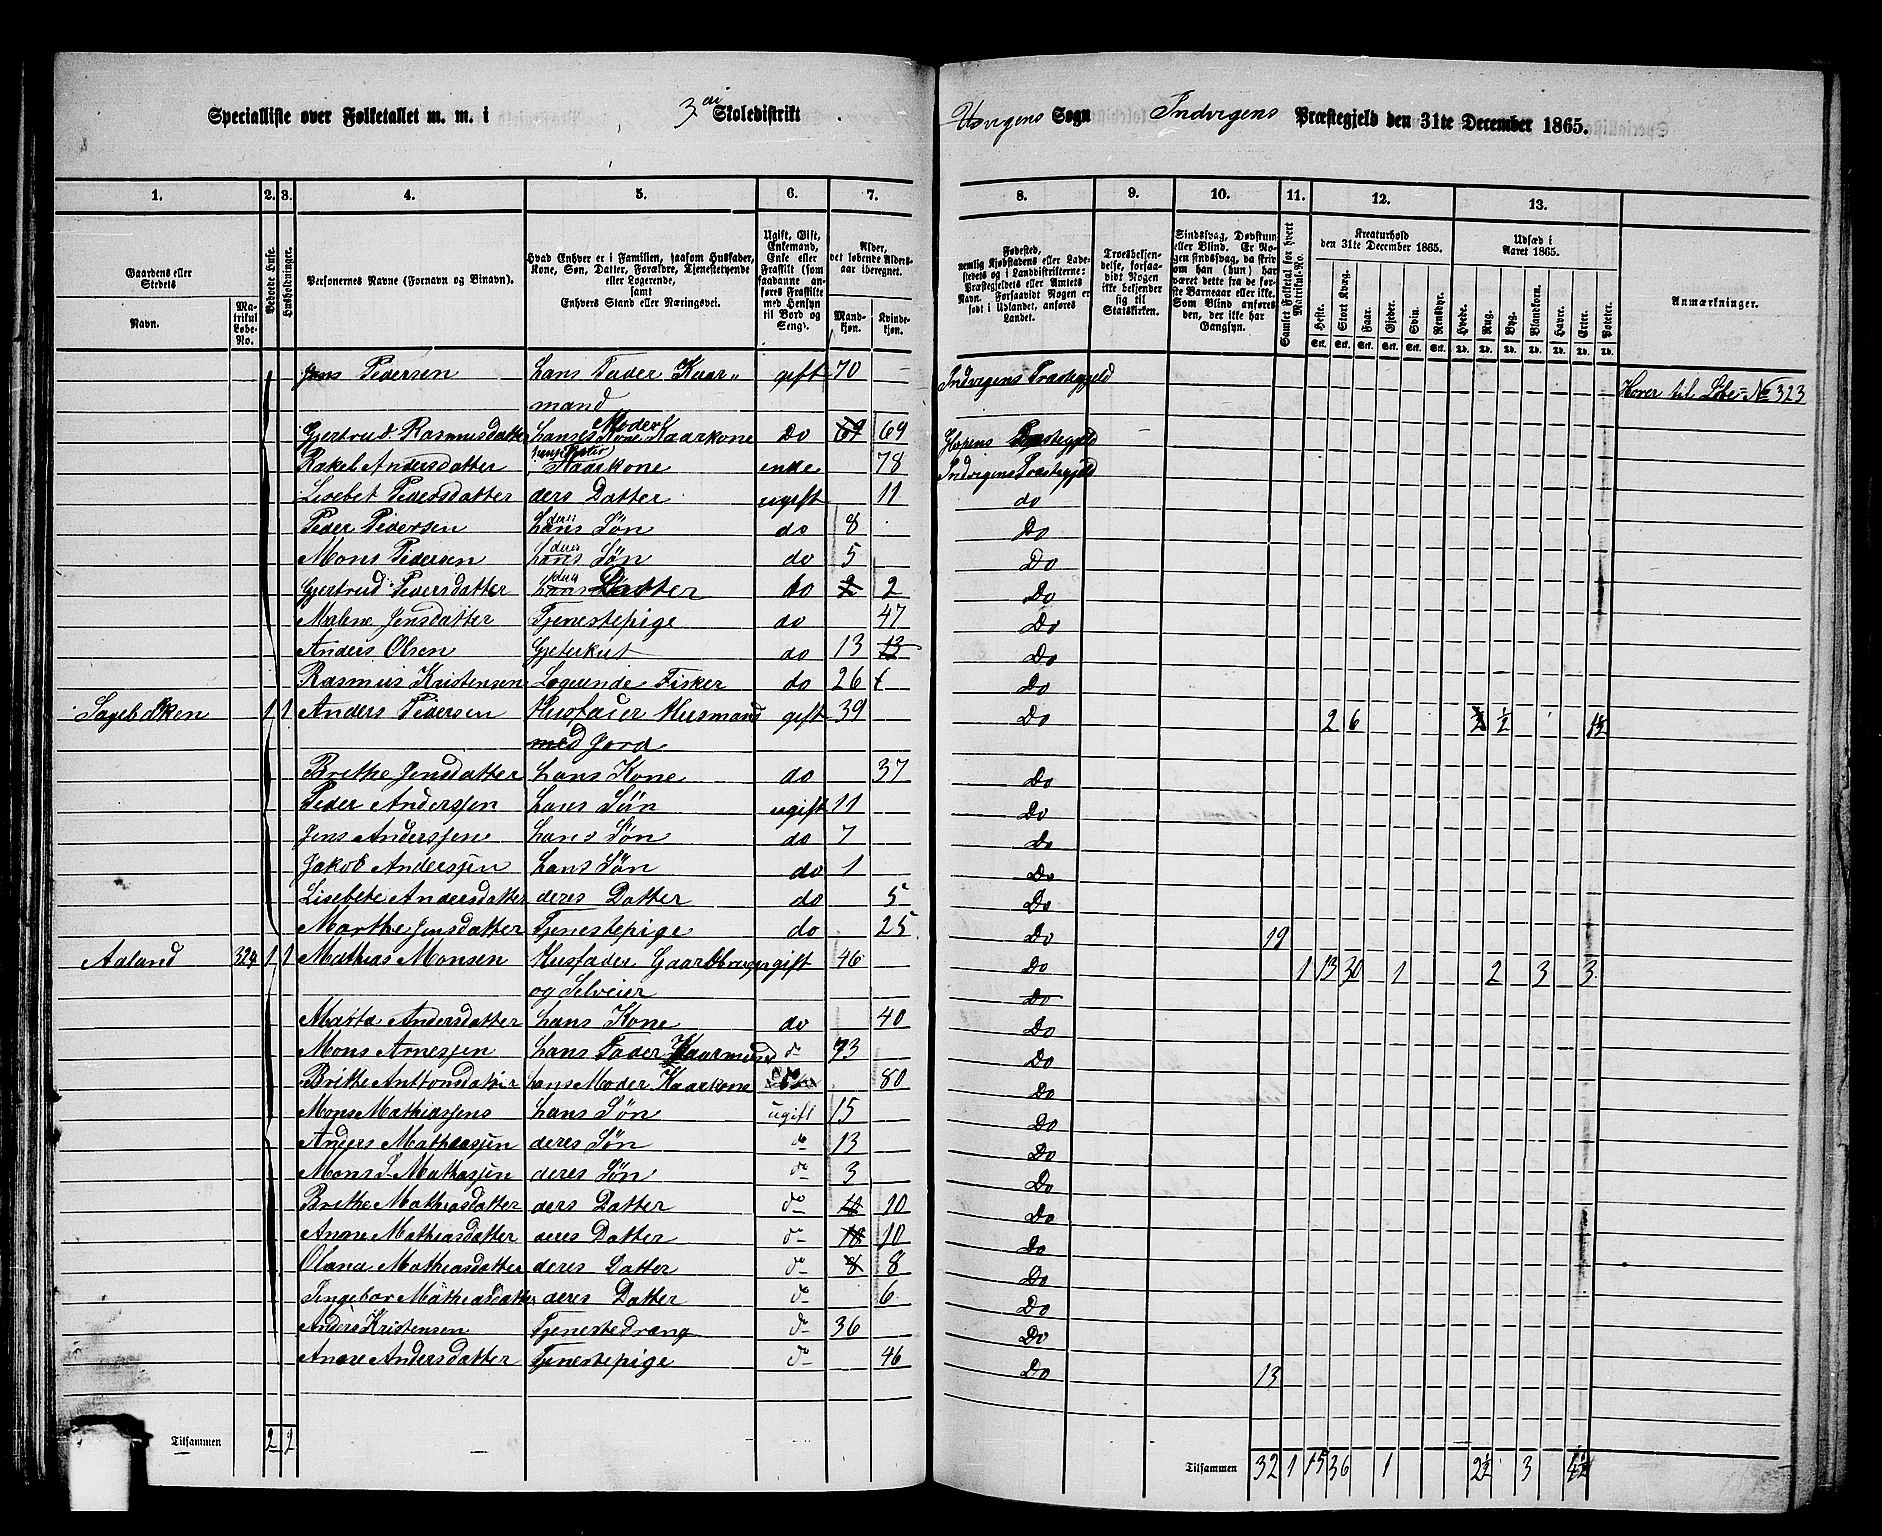 Specialliste over Folketallet m. m. i 3die Skoledistrikt
Sogn Indvigens Præstegjeld den 31te December 1865.
1. 2. 3. 4. 5. 6. 7.
8. 9. 10. 11. 12. 13.
Gaardens eller Stedets
Navn.
Matrikul Løbe-No.
Beboede Huse.
Husholdninger.
Personernes Navne (Fornavn og Binavn).
Hvad Enhver er i Familien, saasom Husfader, Kone, Søn, Datter, Forældre, Tjenestetyende eller Logerende,
samt
Enhvers Stand eller Næringsvei.
Ugift, Gift, Enkemand, Enke eller Fraskilt (som saadanne anføres Fraskilte med Hensyn til Bord og Seng).
Alder, det løbende Alders-aar iberegnet.
Mandkjøn. Kvindekjøn.
Fødested, nemlig Kjøbstadens eller Ladestedets og i Landdistrikterne: Præstegjeldets eller Amtets Navn. Forsaavidt Nogen er født i Udlandet, anføres Landet.
Troesbekjendelse, forsaavidt Nogen ikke bekjender sig til Statskirken.
Sindssvag, Døvstum eller Blind. Er Nogen sindssvag, da skriv om han (hun) har været dette fra de første Barneaar eller ikke. Som Blind anføres den, der ikke har Gangsyn.
Samlet Folketal for hvert Matrikul-No.
Kreaturhold den 31te December 1865.
Heste. Stort Kvæg. Faar. Gjeder. Svin. Rensdyr.
Udsæd i Aaret 1865.
Hvede. Rug. Byg. Blandkorn. Havre. Erter. Poteter.
Anmærkninger.
Jens Pedersen hans Fader Kaar- gift 70 Indvigens Præstegjeld Hører til Løbe-No 323
mand
Gjertrud Rasmusdatter hanses Kone Moder Kaarkone Do 69 69 Præstegjeld
Rakel Andersdatter Kaarkone enke 78 Indvigens Præstegjeld
Lisebet Pedersdatter ders Datter ugift 11 do
Peder Pedersen hans deres Søn do 8 Do
Mons Pedersen hans deres Søn do 5 Do
Gjertrud Pedersdatter hans deres Datter do 2 2 Do
Malene Jensdatter Tjenestepige do 47 Do
Anders Olsen Gjeterkut do 13 13 Do
Rasmus Kristensen Logerende Fisker do 26 Do
Sagebakken 1 1 Anders Pedersen Husfader Husmand gift 39 Do 2 6 ½ 1½
med Jord
Brithe Jensdatter hans Kone do 37 Do
Peder Anderssen hans Søn ugift 11 Do
Jens Anderssene hans Søn do 7 Do
Jakob Anderssen hans Søn do 1 Do
Lisebete Andersdatter deres Datter do 5 Do
Marthe Jensdatter Tjenestepige do 25 Do 19
Aaland 324 1 1 Mathias Monsen Husfader Gaardbruger gift 46 Do 1 13 30 1 2 3 3
og Selveier Do
Marta Andersdatter hans Kone do 40 Do
Mons Arnessen hans Fader Kaarmand do 73 Do
Britte Antonsdatter hans Moder Kaarkone do 80 Do
Mons Mathiassens hans Søn ugift 15 Do
Anders Mathiassen deres Søn do 13 Do
Mons S. Mathiassen deres Søn do 3 Do
Brithe Mathiasdatter ders Datter do 10 10 Do
Anne Mathiasdatter deres Datter do 10 10 Do
Olana Mathiasdatter deres Datter do 8 8 Do
Jngebor Mathiasdatter deres Datter do 6 Do
Anders Kristensen Tjenestedræng do 36 Do
Anne Andersdatter Tjenestepige do 46 Do 13
Tilsammen 2 2
Tilsammen 32 1 15 36 1 2½ 3 4½